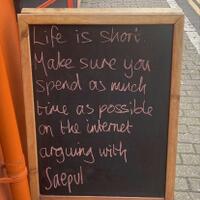 Life is short.
Make sure you
spend as much
time as possible
on the internet
arguing with
Saepul